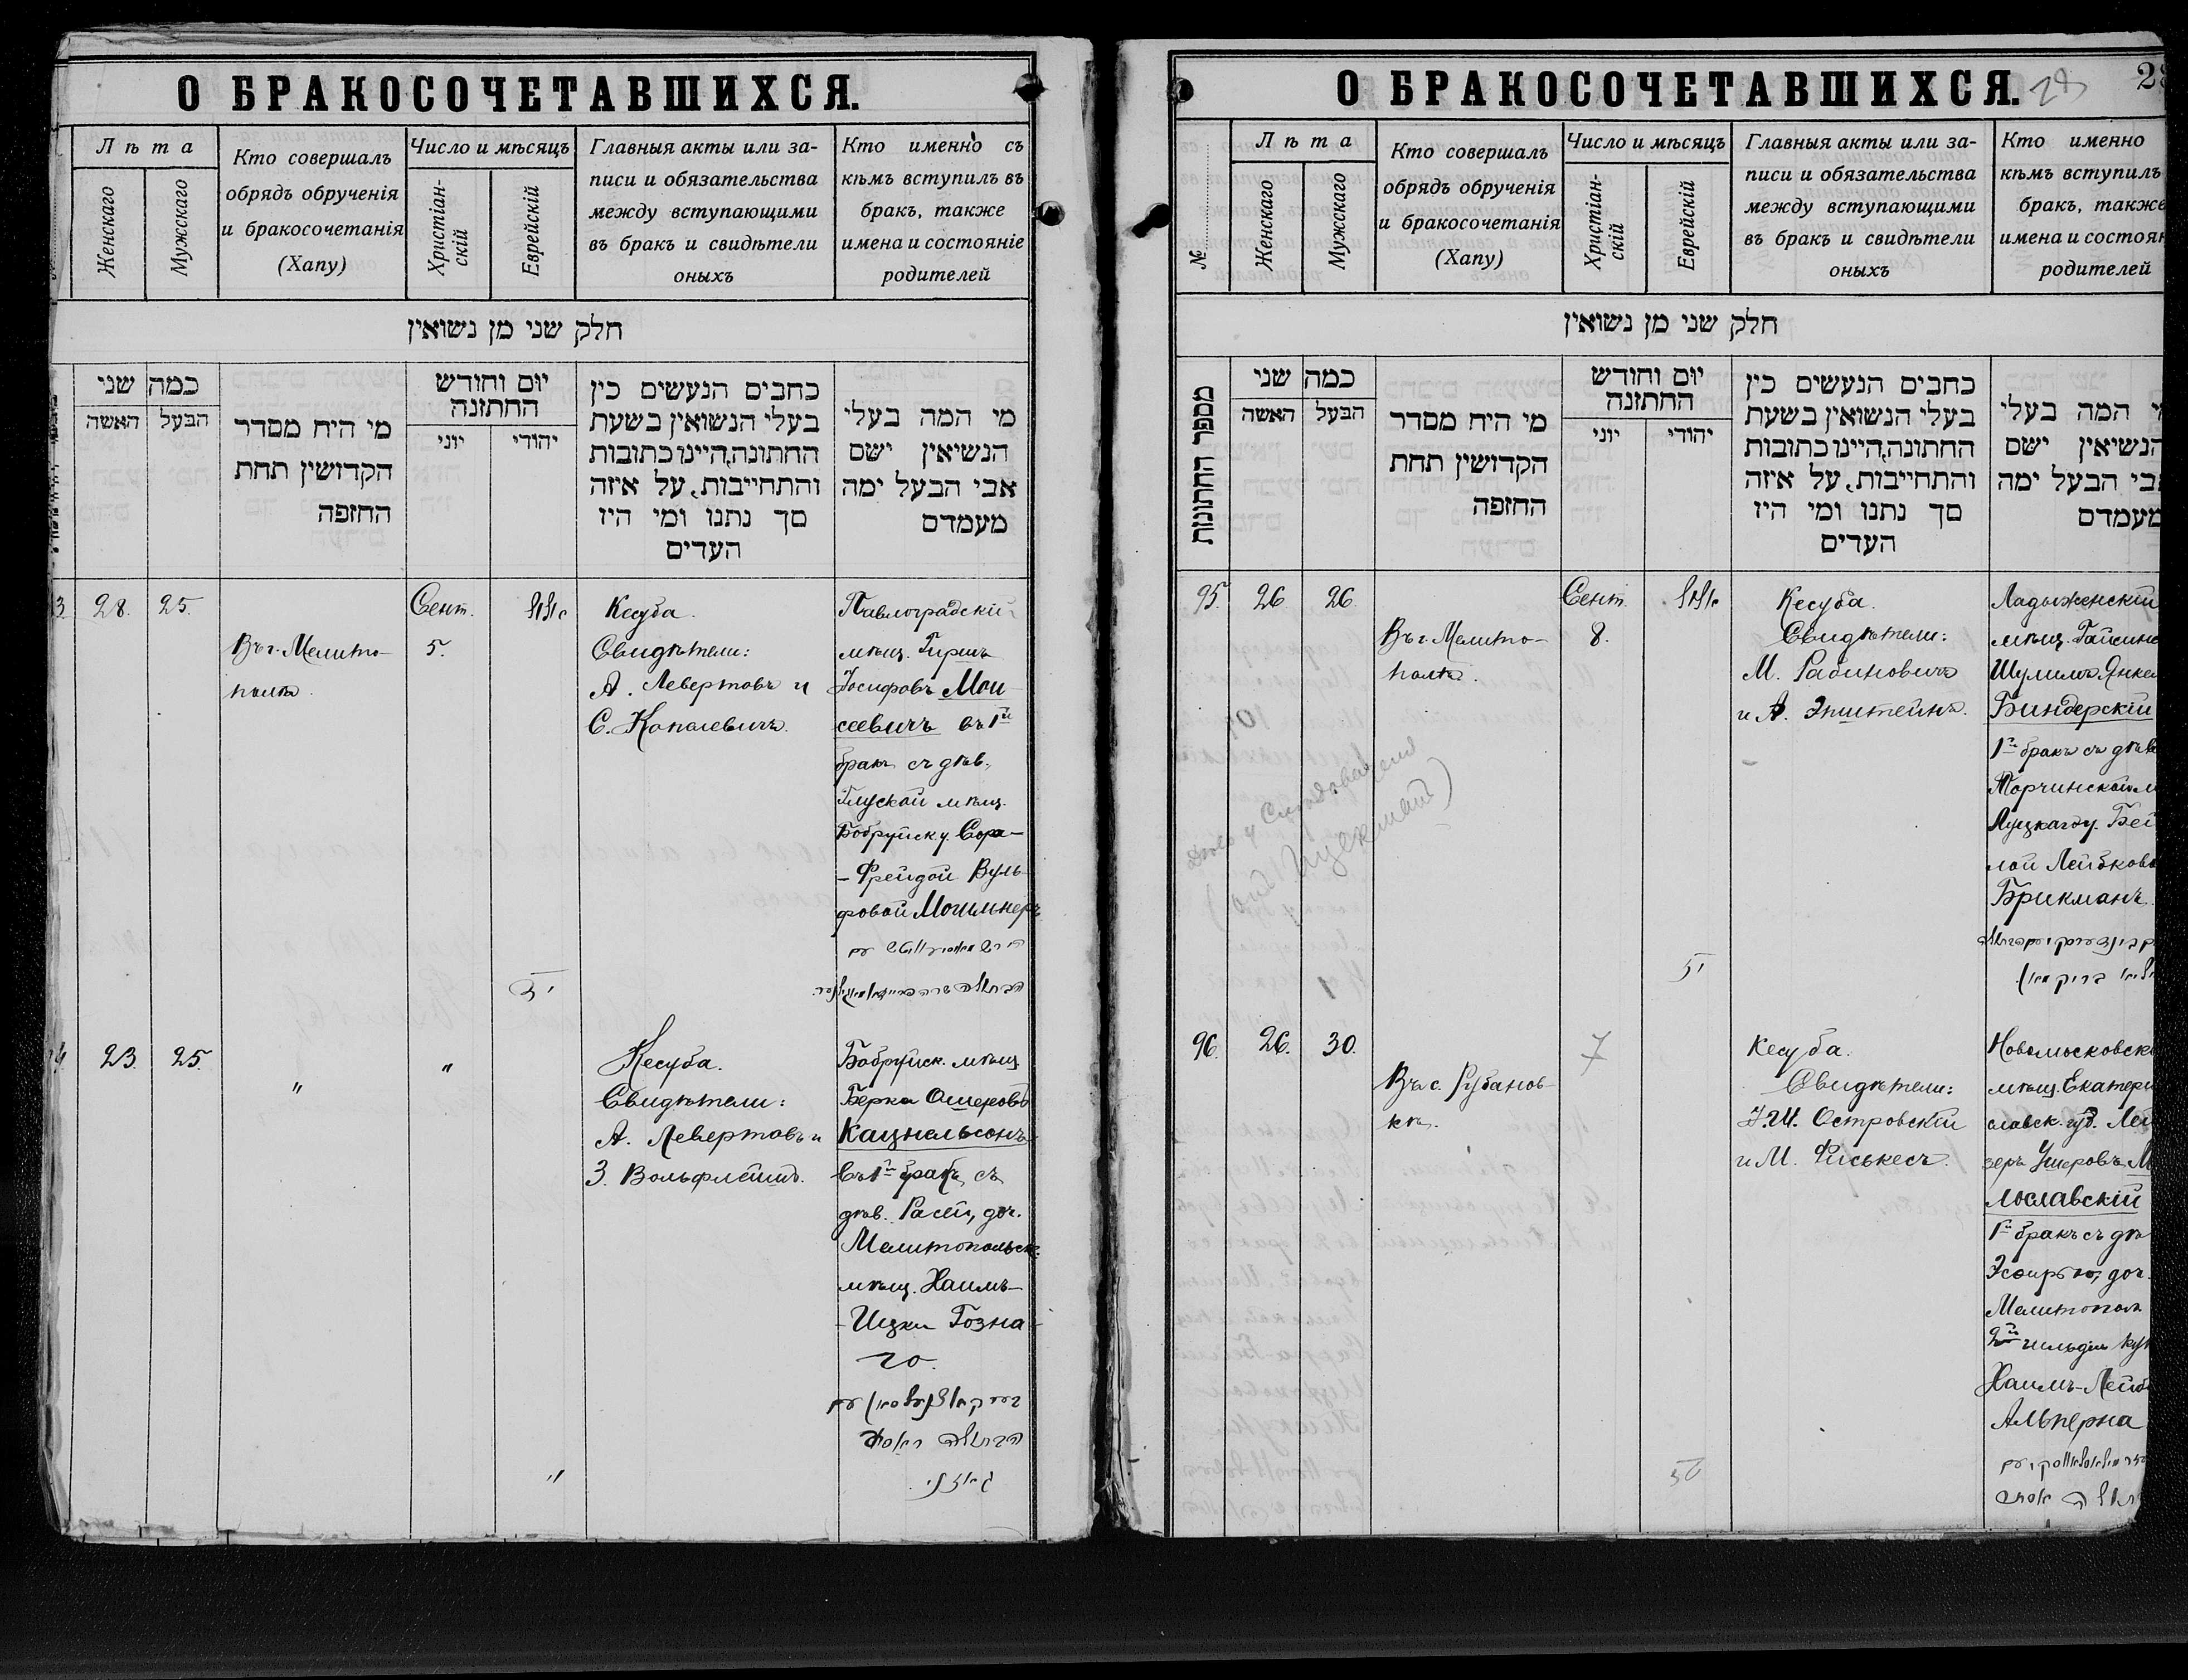 О БРАКОСОЧЕТАВШИХСЯ.
Лѣта
Женскаго
Мужскаго
Кто совершалъ
обрядъ обрученія
и бракосочетанія
(Хапу)
Число и мѣсяцъ
Христіан-
скій
Еврейскій
Главныя акты или за-
писи и обязательства
между вступающими
въ бракъ и свидѣтели
оныхъ
Кто именно съ
кѣмъ вступилъ въ
бракъ, также
имена и состояніе
родителей
חלק שני מן נשואין
כמה שני
האשה
הבעל
מי היח מסדר
הקדושין תחת
החופה
יום וחודש
החתונה
יוני
יהודי
כתבים הנעשים כין
בעלי הנשואין בשעת
החתונה,היינו כתובות
והתחייבות, על איזה
סך נתנו ומי היו
העדים
מי המה בעלי
הנשיאין ישם
אבי הבעל ימה
מעמדם
3
28.
25.
Въ г. Мелито-
полѣ.
Сент.
5.
אלול
Кесуба.
Свидѣтели:
А. Левертовъ и
С. Копелевичъ.
Павлоградскій
мѣщ. Гиршъ
Іосифовъ Мои
сеевичъ въ 1й
бракъ съ дѣв.
Глуской мѣщ.
Бобруйск у. Сора-
-Фрейдой Вуль-
фовой Могилнеръ
4
23.
25.
"
"
"
Кесуба.
Свидѣтели:
А. Левертовъ и
З. Вольфлешъ.
Бобруйск. мѣщ.
Берка Ошеровъ
Кацнельсонъ
въ 1й бракъ съ
дѣв. Расей, доч.
Мелитопольск.
мѣщ. Хаимъ-
-Ицки Гозна-
го.
О БРАКОСОЧЕТАВШИХСЯ.
28
№
Лѣта
Женскаго
Мужскаго
Кто совершалъ
обрядъ обрученія
и бракосочетанія
(Хапу)
Число и мѣсяцъ
Христіан-
скій
Еврейскій
Главныя акты или за-
писи и обязательства
между вступающими
въ бракъ и свидѣтели
оныхъ
Кто именно
кѣмъ вступилъ
бракъ, также
имена и состоян
родителей
חלק שני מן נשואין
מספר החתונות
כמה שני
האשה
הבעל
מי היח מסדר
הקדושין תחת
החופה
יום וחודש
החתונה
יוני
יהודי
כתבים הנעשים כין
בעלי הנשואין בשעת
החתונה,היינו כתובות
והתחייבות, על איזה
סך נתנו ומי היו
העדים
י המה בעלי
הנשיאין ישם
בי הבעל ימה
מעמדם
95.
26
26.
Въ г. Мелито-
полѣ.
Сент.
8.
אלול
Кесуба.
Свидѣтели:
М. Рабиновичъ
и А. Эпштейнъ.
Ладыженскій
мѣщ. Гайсинс
Шулимъ Янкел
Биндерскій
1й бракъ съ дѣв
Торчинской м
Луцкаго у. Бей
лой Лейбково
Брикманъ.
96.
26.
30.
Въ с. Рубанов-
кѣ.
7
Кесуба.
Свидѣтели:
Островскій
и М. Фиськесъ.
Новомосковск
мѣщ. Екатери
славск. губ. Лей
зеръ Ушеровъ М
лославскій
1й бракъ съ дѣ
Эсѳирью, доч.
Мелитопол.
2й гильдіи куп
Хаимъ-Лейб
Альперна